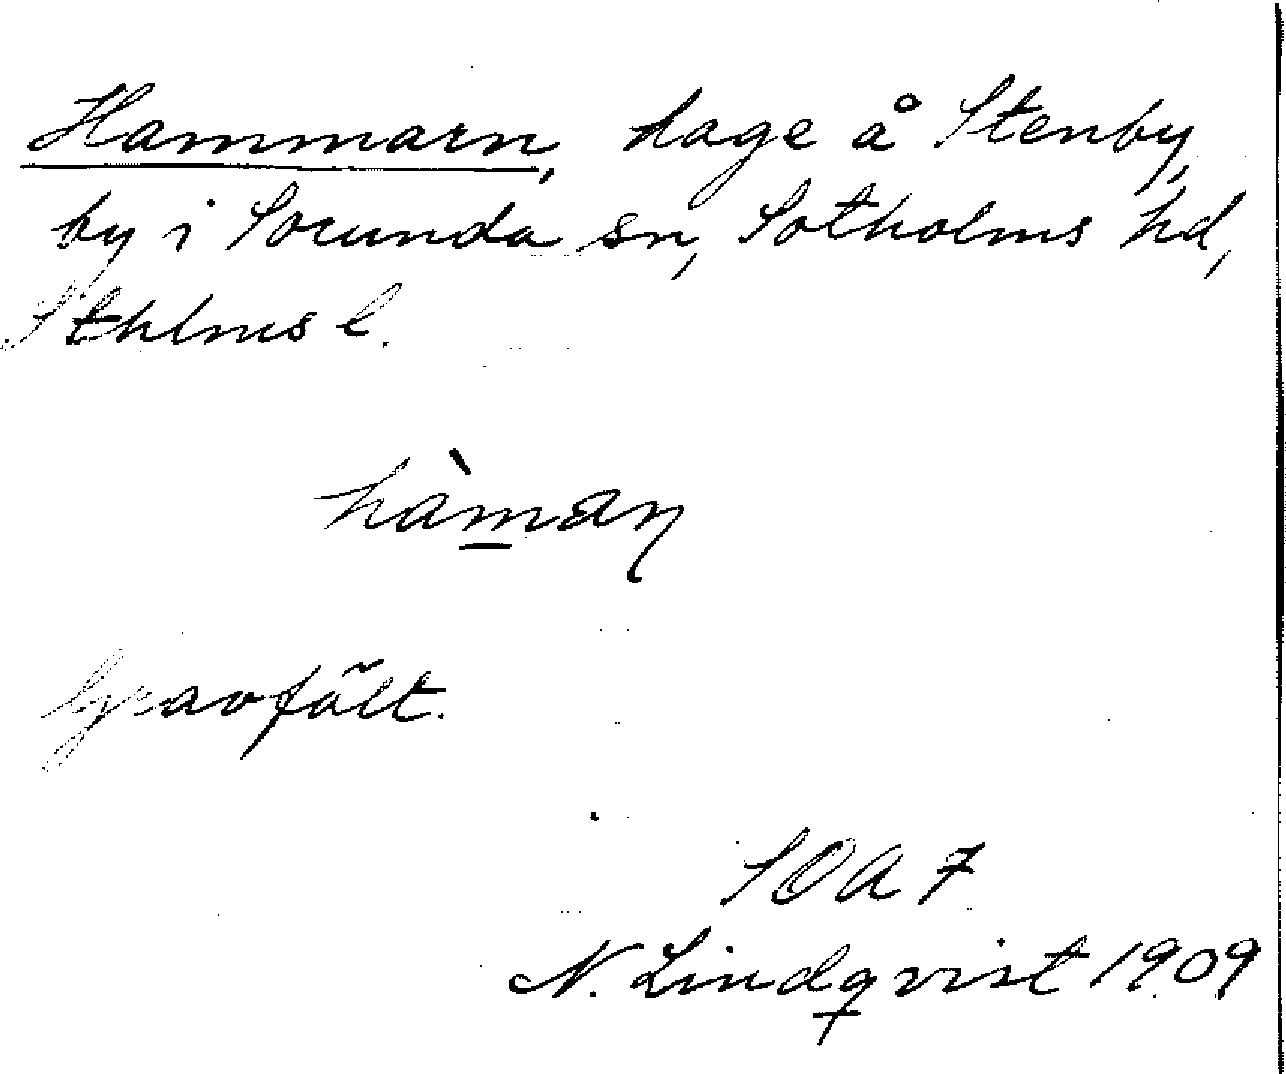 Hammarn, hage å Stenby,
by i Sorunda sn, Sotholms hd,
Sthlms l.
hàm̲aɳ
Gravfält.
SOA 7
N. Lindqvist 1909